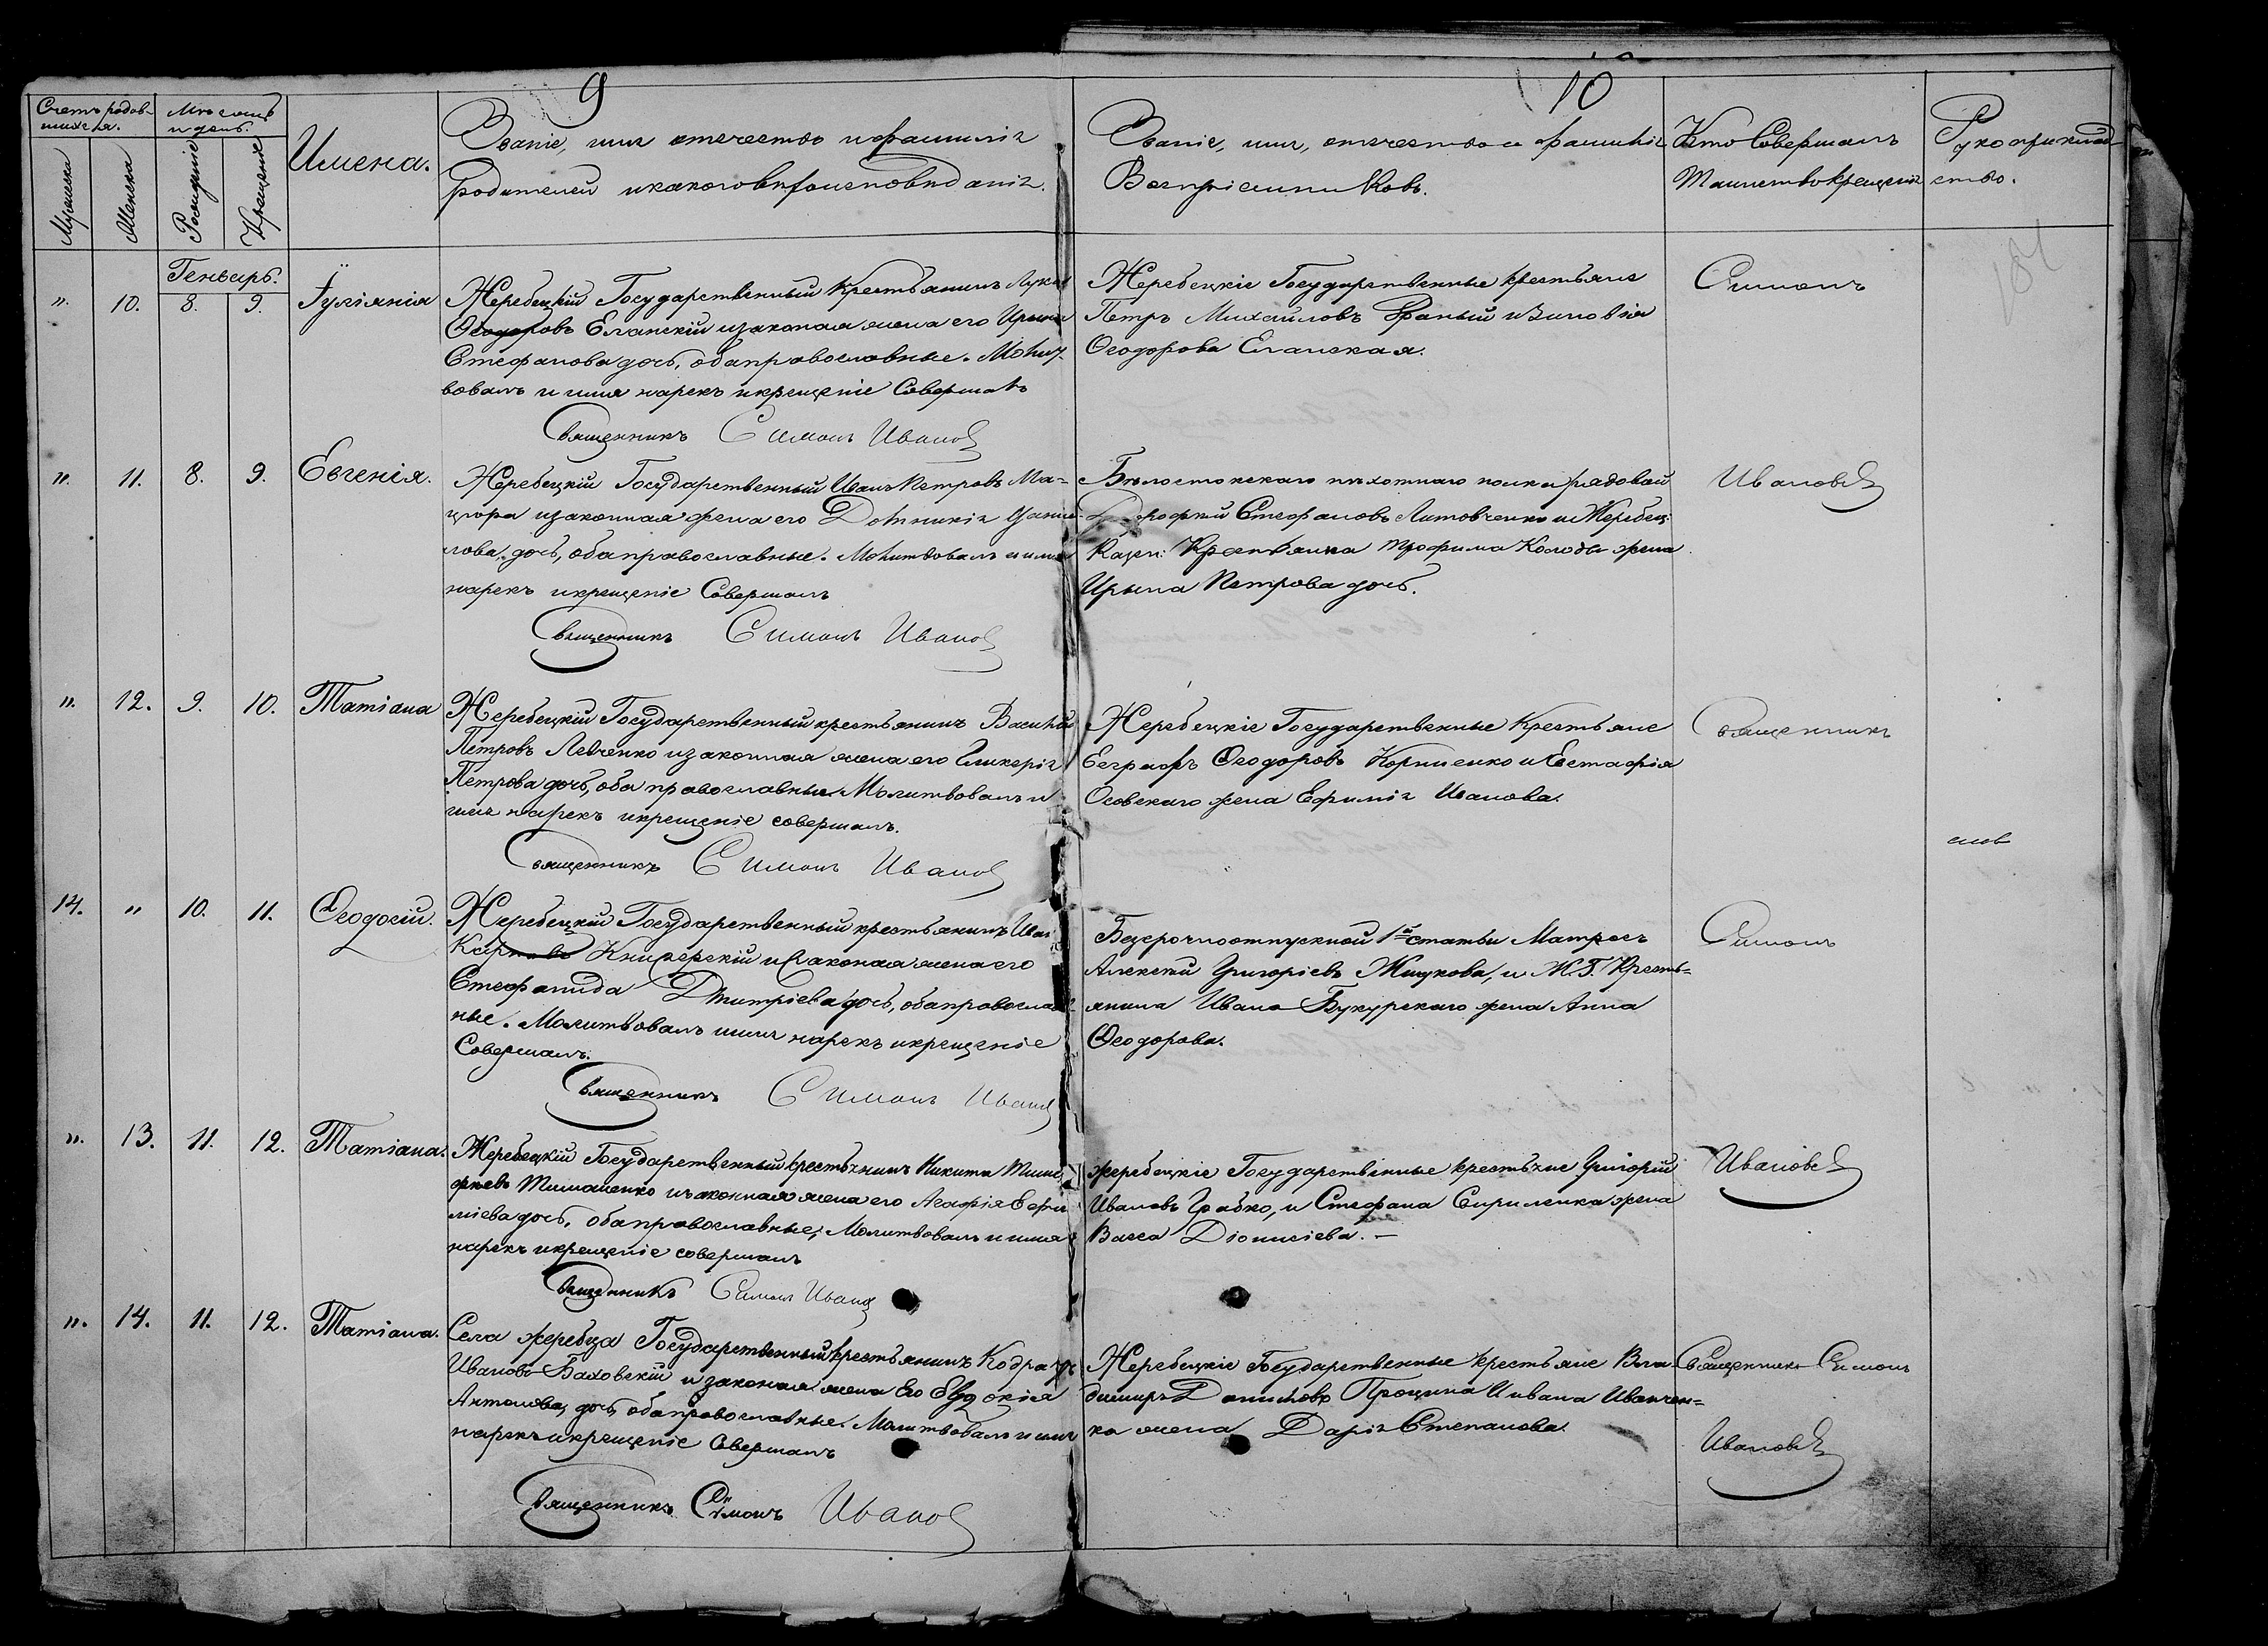 9
10
Счетъ родив-
шихся.
Мѣсяцъ
и день.
Мужеска
Женска
Рожденiе
Крещенiе
Имена.
Званiе, имя отечество и фамилiя
родителей и какого вѣроисповѣданiя.
Званiе, имя, отечество и фамилiя
Воспрiемниковъ.
Кто Совершалъ
Таинство крещенiя
Рукоприклад-
ство.
Генварь.
". 10. 8. 9. Iулiянiя
Жеребецкiй Государственный Крестьянинъ Лука
Ѳеодоровъ Еланскiй и законная жена его Ирина
Стефанова дочь, оба православные. Молит-
вовалъ и имя нарекъ и крещенiе Совершалъ
Священникъ Симонъ Ивановъ
Жеребецкiе Государственные крестьяне
Петръ Михайловъ и Зиновiя
Ѳеодорова Еланская.
Симонъ
". 11. 8. 9. Евгенiя.
Жеребецкiй Государственный Иванъ Петровъ Ма-
цюра и законная жена его Домникiя
дочь, оба православные. Молитвовалъ и имя
нарекъ и крещенiе Совершалъ
Священникъ Симонъ Ивановъ
Бѣлостокскаго пѣхотнаго полка рядовой
Стефановъ Литовченко и Жеребец:
Казен: Крестьянина Трофима Колоды жена
Ирына Петрова дочь.
Ивановъ
". 12. 9. 10. Татiана
Жеребецкiй Государственный крестьянинъ Василiй
Петровъ Левченко и законная жена его Гликерiя
Петрова дочь, оба православные. Молитвовалъ и
имя нарекъ и крещенiе совершалъ.
Священникъ Симонъ Ивановъ
Жеребецкiе Государственные Крестьяне
Евграфъ Ѳеодоровъ Корниенко и Евстафiя
Осовскаго жена Ефимiя Иванова.
Священникъ
14. " 10. 11. Ѳеодосiй.
Жеребецкiй Государственный крестьянинъ Иванъ
Книжерскiй и законная жена его
Стефанида Дмитрiева дочь, оба православ-
ные. Молитвовалъ и имя нарекъ и крещенiе
Совершалъ.
Священникъ Симонъ Ивановъ
Безсрочноотпускной 1й статьи Матросъ
Алексѣй Григорiевъ Жицкова, и Ж. Г. Кресть-
янина Ивана Букурскаго жена Анна
Ѳеодорова.
Симонъ
". 13. 11. 12. Татiана.
Жеребецкiй Государственный крестьянинъ Никита Тимо-
фѣевъ Тимошенко и законная жена его Агафiя Ефи
мiева дочь, оба православные; Молитвовалъ и имя
нарекъ и крещенiе совершалъ
Священникъ Симонъ Ивановъ
жеребецкiе Государственные крестьяне Григорiй
Ивановъ Грабко, и Стефана Сириленка жена
Васса Дiонисiева. —
Ивановъ
". 14. 11. 12. Татiана.
Села жеребца Государственный крестьянинъ Кодратъ
Ивановъ Баховскiй и законная жена Его Евдокiя
Антонова дочь, оба православные. Молитвовалъ и имя
нарекъ и крещенiе Совершалъ
Священникъ Симонъ Ивановъ
Жеребецкiе Государственные крестьяне Вла-
димиръ Даниловъ Процина и Ивана Иванчен-
ка жена Дарiя Степанова.
Священникъ Симонъ
Ивановъ